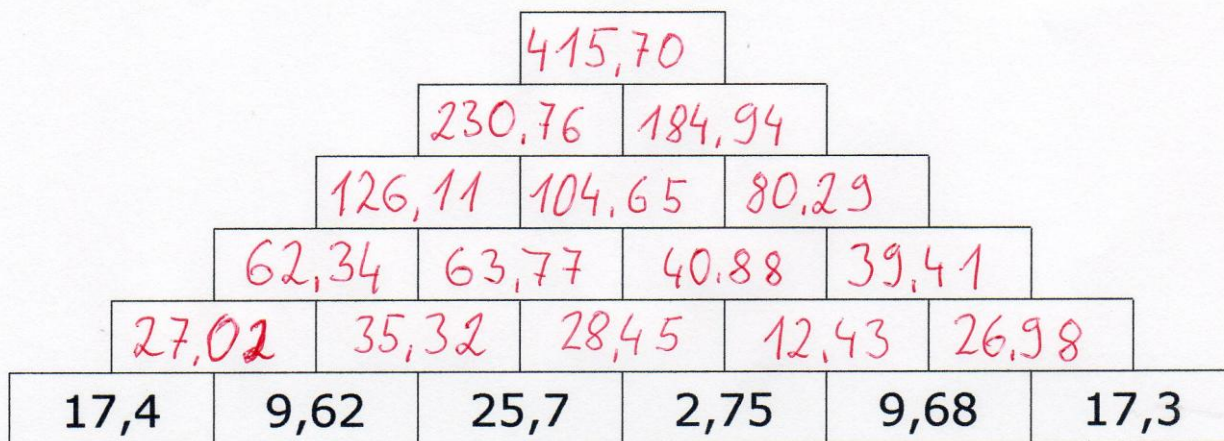 415,70
230,76 184,94
126,11 104,65 80,29
62,34 63,77 40.88 39,41
27,02 35,32 28,45 12,43 26,98
17,4 9,62 25,7 2,75 9,68 17,3